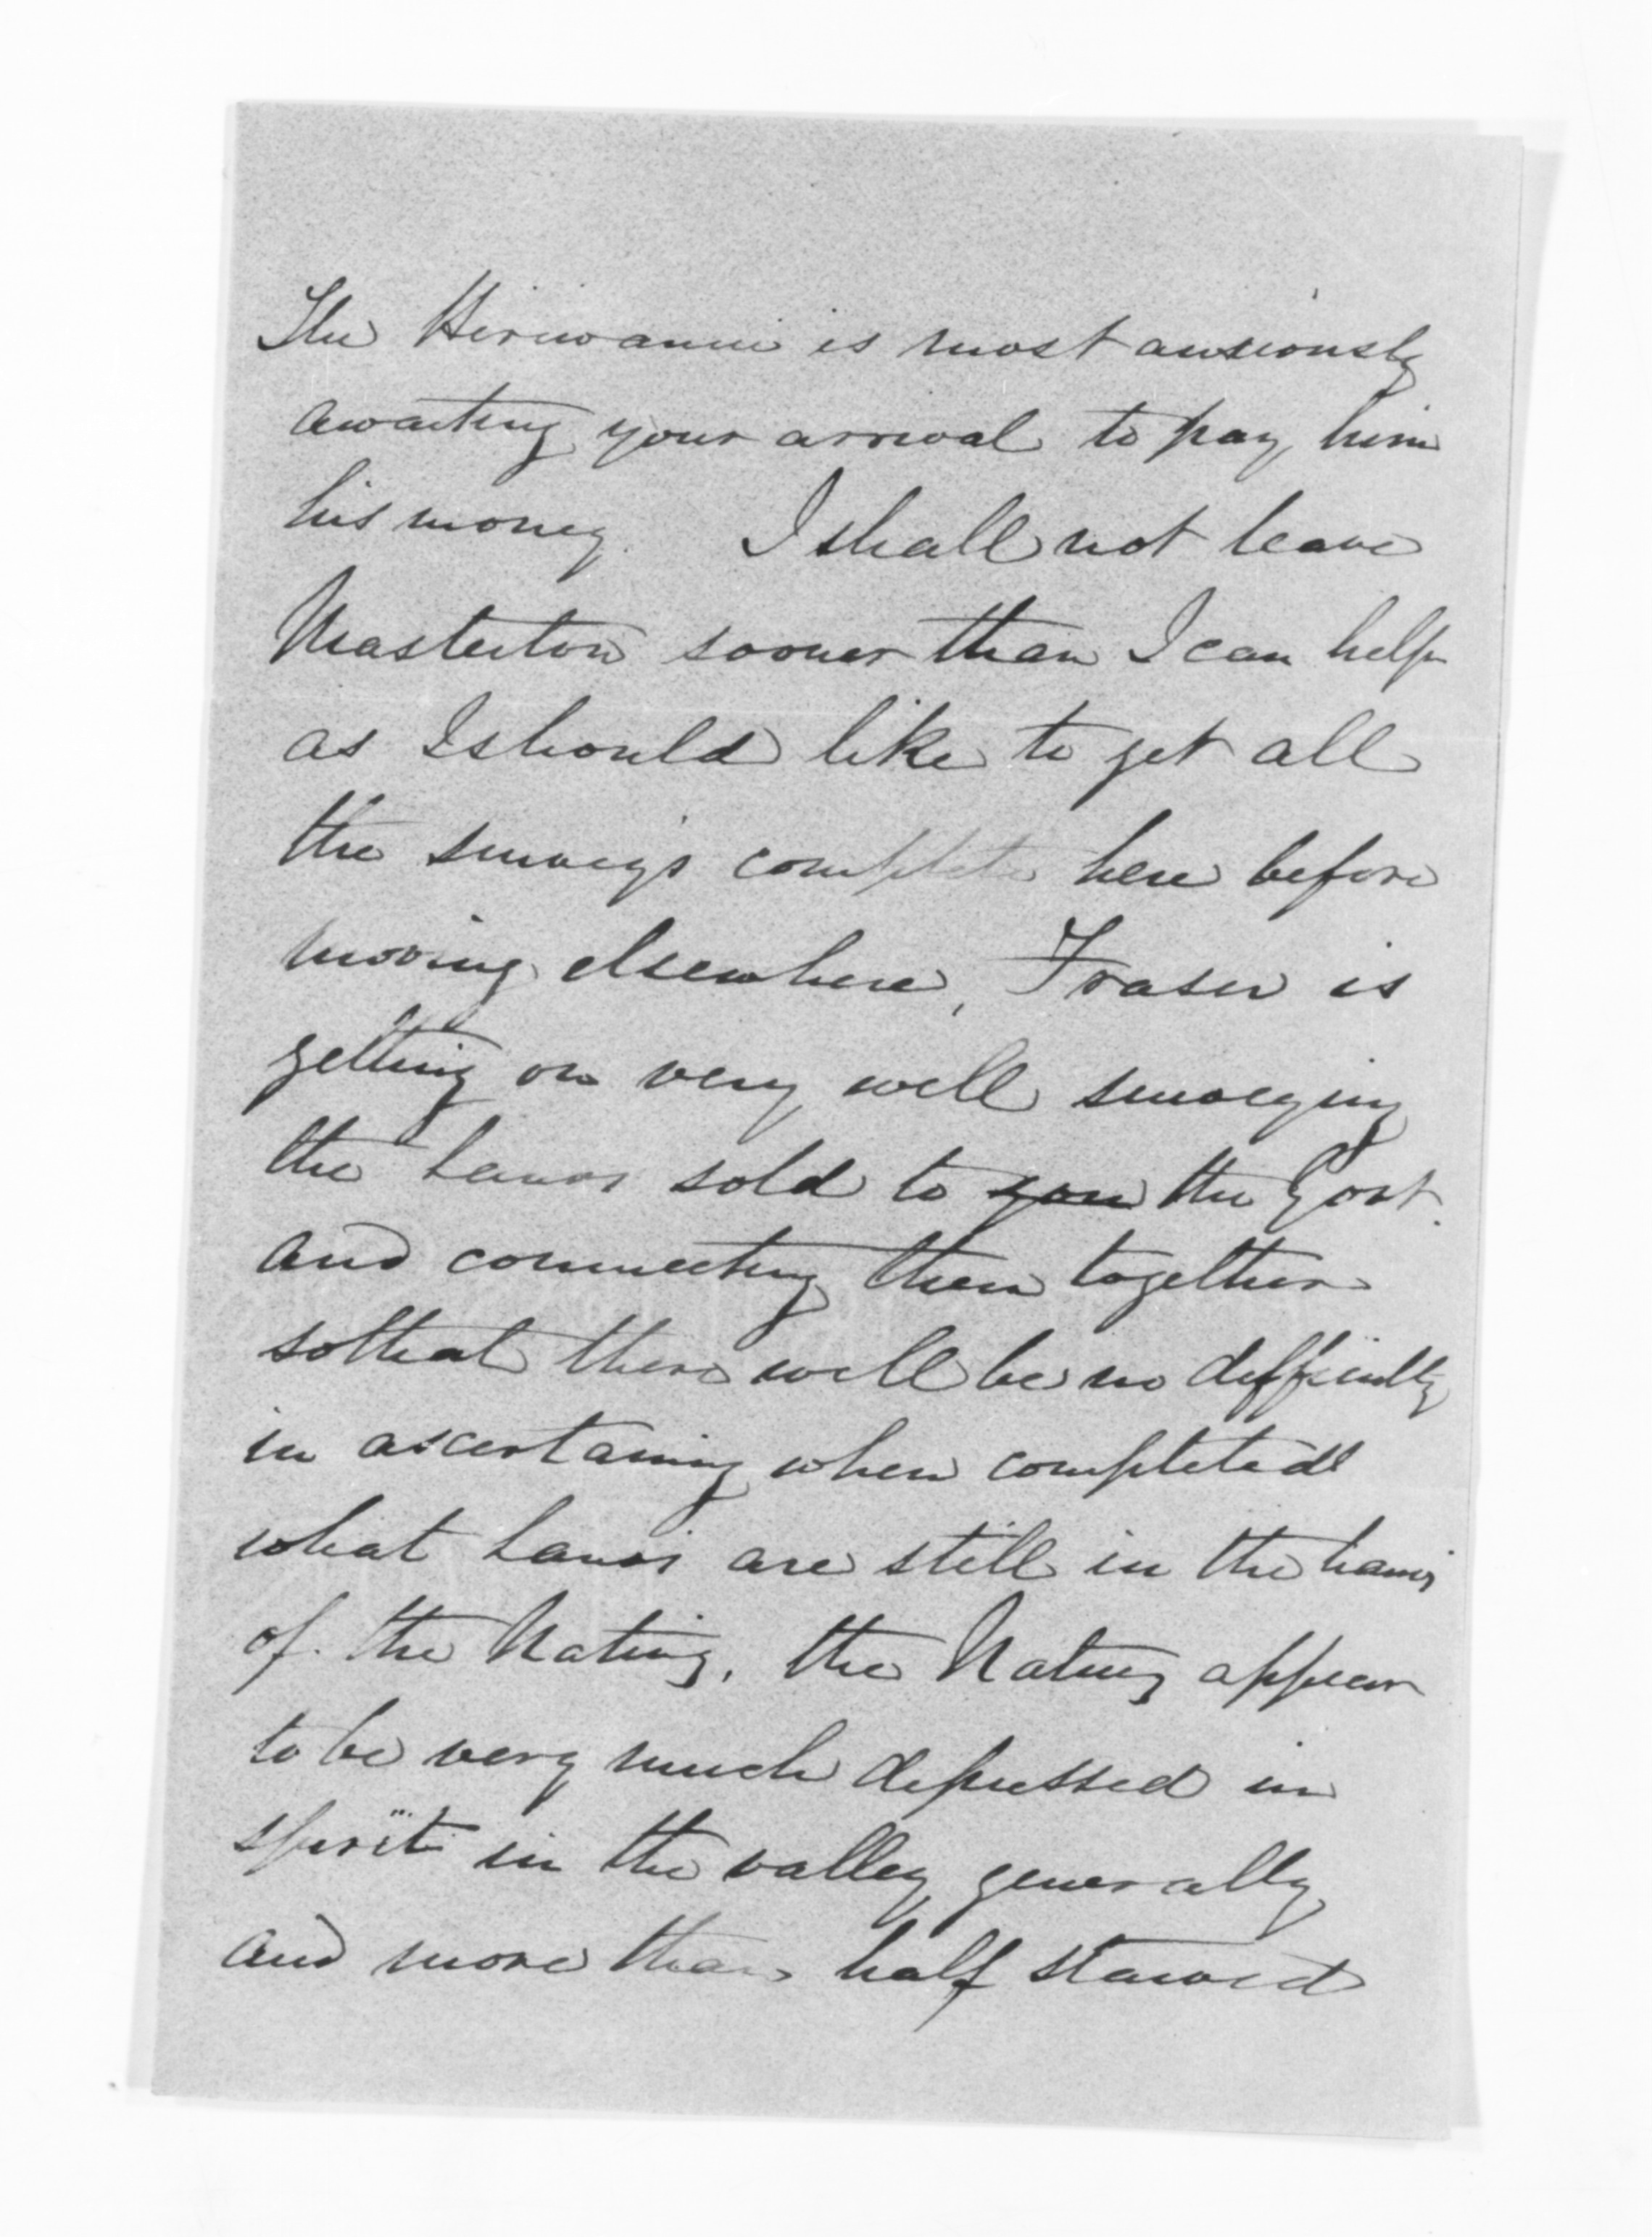 The Hiriwanui is most anxiously
awaiting your arrival to pay him
his money. I shall not leave
Masterton sooner than I can help
as I should like to get all
the surveys complete here before
moving elsewhere, Fraser is
getting on very well surveying
the Lands sold to you the Govt.
and connecting them together
so that there will be no difficulty
in ascertaining when completed
what Lands are still in the hands
of the Natives, the Natives appear
to be very much depressed in
spirit in the valley generally
and more than half starved